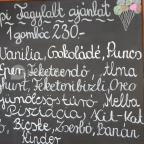 pi Fagylalt ajánlat
1 gombóc 230-
Vanília, Csokoládé, Puncs
Eper, Feketeerdő, Alma
ghurt, Feketeribizli, Oreo
Gyümölcsös túró, Melba
Pisztácia, Kit-Kat
ó, Böske, Zserbó, Banán
Kinder